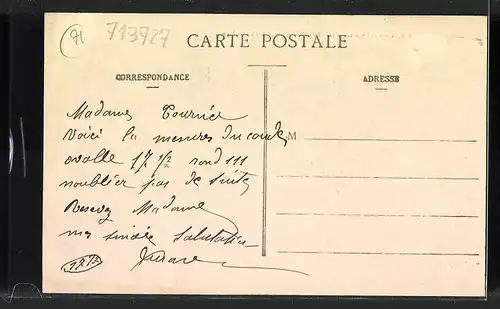 71
713927
CARTE POSTALE
CORRESPONDANCE
ADRESSE
Madame Tournier
Voici la mesures du conte
ovalle 17 1/2 rond 111
noublier pas de suite
Recevez Madame
ma sincère Salutation
M